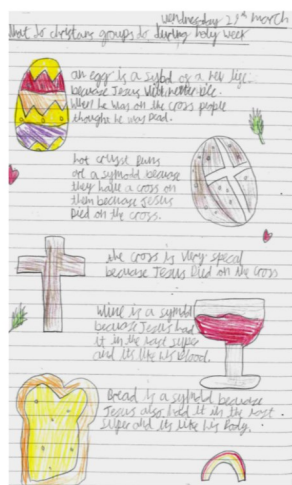 Wednesday 29th March
What do christans groups do during holy week
an egg is a symbol of a new life
because Jesus
When he was on the cross people
thought he was Dead.
hot crosst buns
are a symbold because
they have a cross on
them because Jesus
Died on the cross.
the cross is very speal
because Jesus Died on the cross
Wine is a symbold
because Jesus had
it in the last super
and its like his blood.
Bread is a symbold because
Jesus also had it in the last
super and its like his Body.